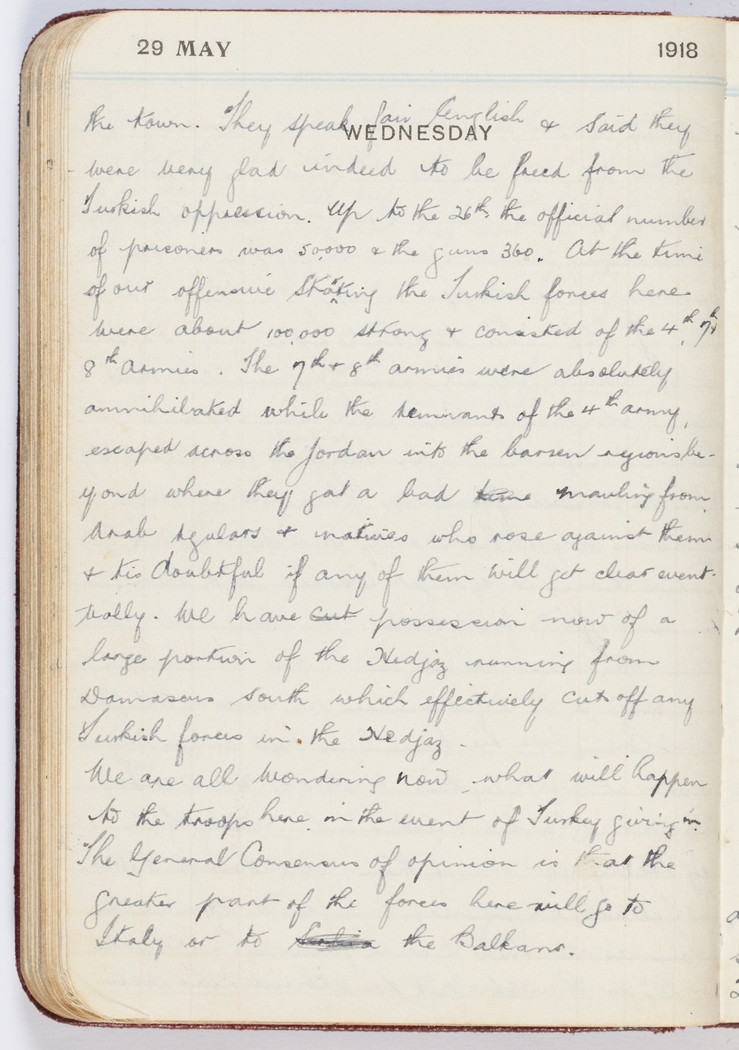 29 MAY 1918
WEDNESDAY
the town. They speak fair English & said they
were very glad indeed to be freed from the
Turkish oppression. Up to the 26th, the official number
of prisoners was 50,000 & the guns 360. At the time
of our offensive starting the Turkish forces here
were about 100,000 strong & consisted of the 4th, 7th &
8th armies. The 7th & 8th armies were absolutely
annihilated while the remnants of the 4th army,
escaped across the Jordan into the barren regions be-
yond where they got a bad time mauling from
Arab regulars & natives who rose against them
& tis doubtful if any of them will get clear event-
ually. We have cut possession now of a
large portion of the Hedjaz running from
Damascus south which effectively cuts off any
Turkish forces in the Hedjaz.
We are all wondering now what will happen
to the troops here in the event of Turkey giving in.
The General Consensus of opinion is that the
greater part of the forces here will go to
Italy or to Serbia the Balkans.